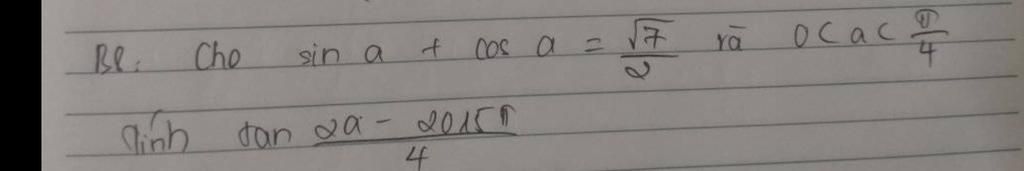 Bl: Cho sin a + cos a = √7/2 và 0 < a < π/4
Tính tan (2a - 2015π)/4